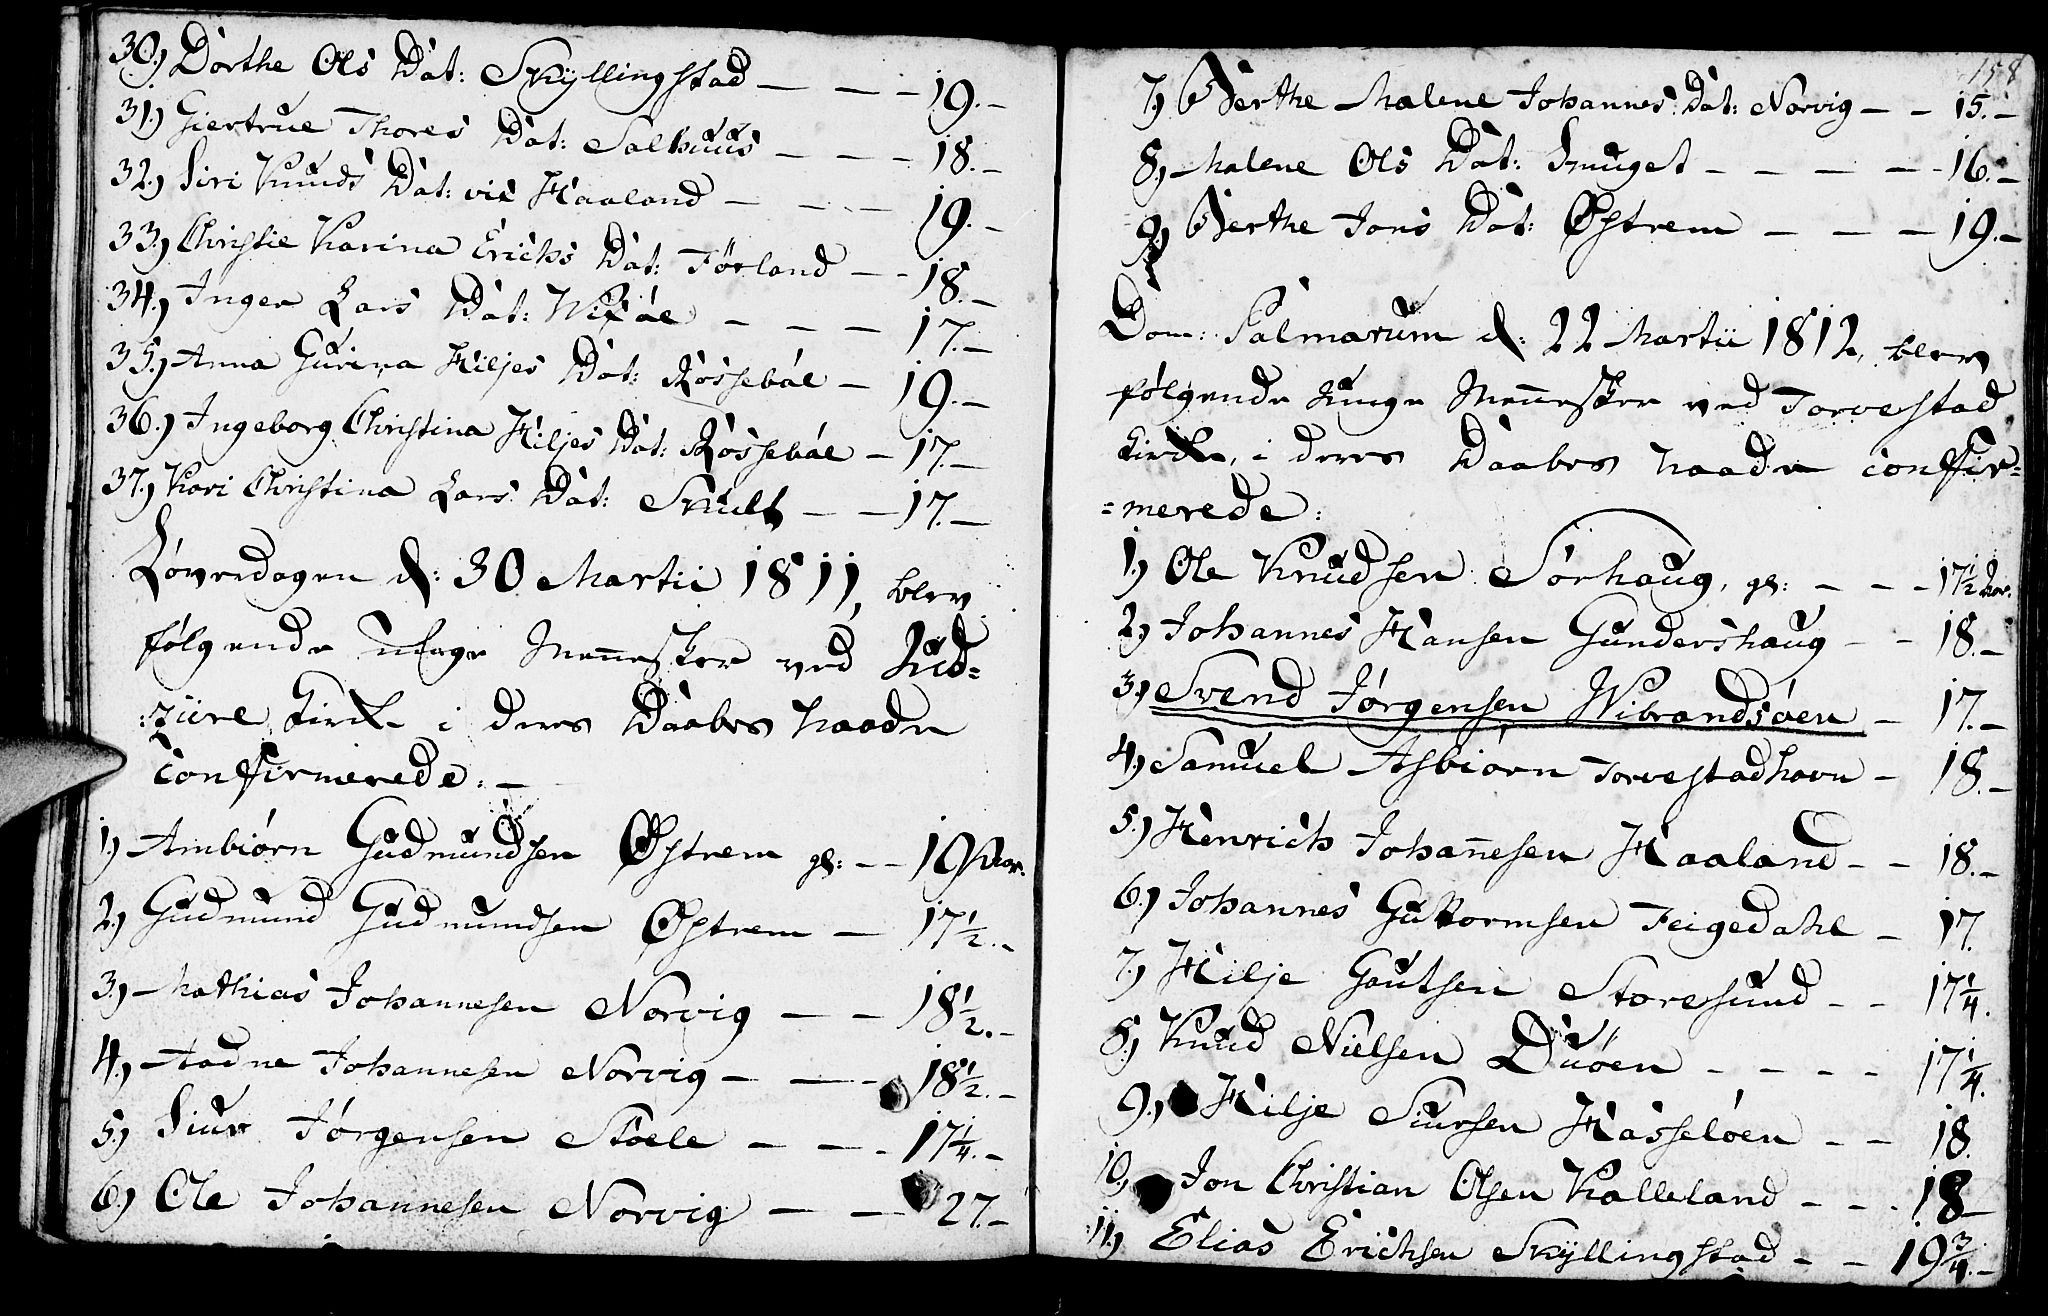 30.) Dorthe Ols Dat: Skyllingstad — — — 19.—
31.) Giertrue Thores Dat: Salhuus — — — 18.—
32.) Siri Knuds Dat: vis Haaland — — — 19.—
33.) Christie Karina Erichs Dat: Førland — — 18.—
34.) Inger Lars Dat: — — — 17.—
35.) Anna Gurina Hiljes Dat: Røssebøe — 19.—
36.) Ingeborg Christina Hiljes Dat: Røssebøe — 17.—
37.) Kari Christina Lars Dat: Skult — — 17.—
Løverdagen d: 30 Martii 1811, blev
følgende unge Menesker ved Uds=
=ziire Kirke i deres Daabes Naade
confirmerede: —
1.) Ambiørn Gudmundsen Østrem gl: — — 19 Aar.
2.) Gudmund Gudmundsen Østrem — 17½.—
3.) Mathias Johannesen Norvig — — 18½.—
4.) Aadne Johannesen Norvig — — 18½.—
5.) Siur Jørgensen Støele — — 17¼.—
6.) Ole Johannesen Norvig — — 27.—
158
7.) Berthe Malene Johannes Dat: Norvig — — 15.—
8.) Malene Ols Dat: Snuget — — — — 16.—
9.) Berthe Jons Dat: Østrem — — — 19.—
Dom: Palmarum d: 22 Martii 1812, blev
følgende unge Menesker ved Torvestad
Kirke, i deres Daabes Naade confir=
=merede:
1.) Ole Knudsen Sørhaug, gl: — — — 17½ Aar.
2.) Johannes Hansen Gundershaug — — 18.—
3.) Svend Jørgensen Wibrandsøen — 17.—
4.) Samuel Asbiørn Torvestadhavn — 18.—
5.) Henrich Johannesen Haaland — — 18.—
6.) Johannes Guttormsen Feigedahl — 17.
7.) Hilje Gautsen Storesund — — 17¼.
8.) Knud Nielsen Duøen — — — — 17¼.
9.) Hilje Siursen Hasseløen — — 18.
10.) Jon Christian Olsen Kalleland — — — 18—
11.) Elias Erichsen Skyllingstad — — 19¾.—